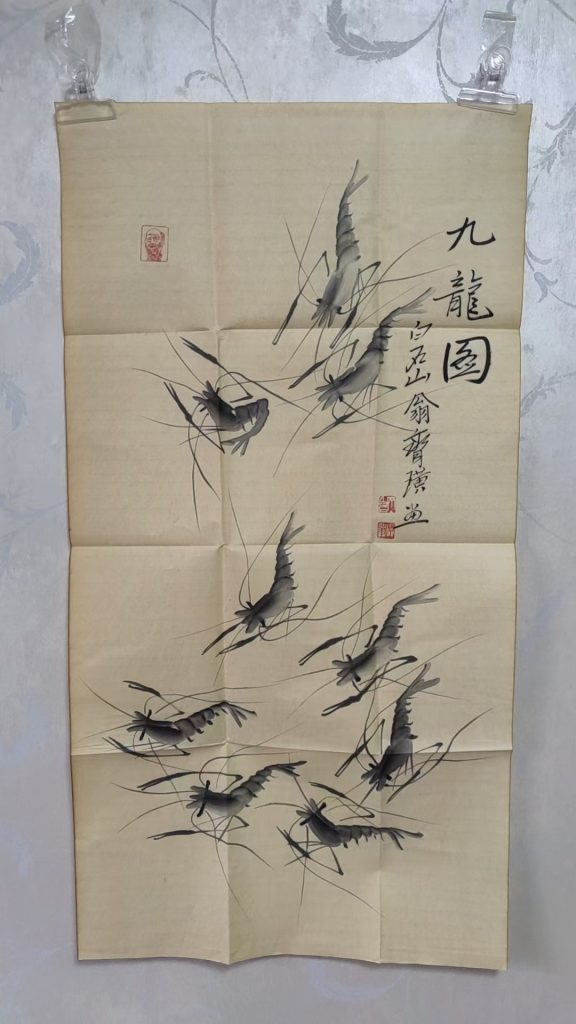 九龍图
白石山翁齊璜畫